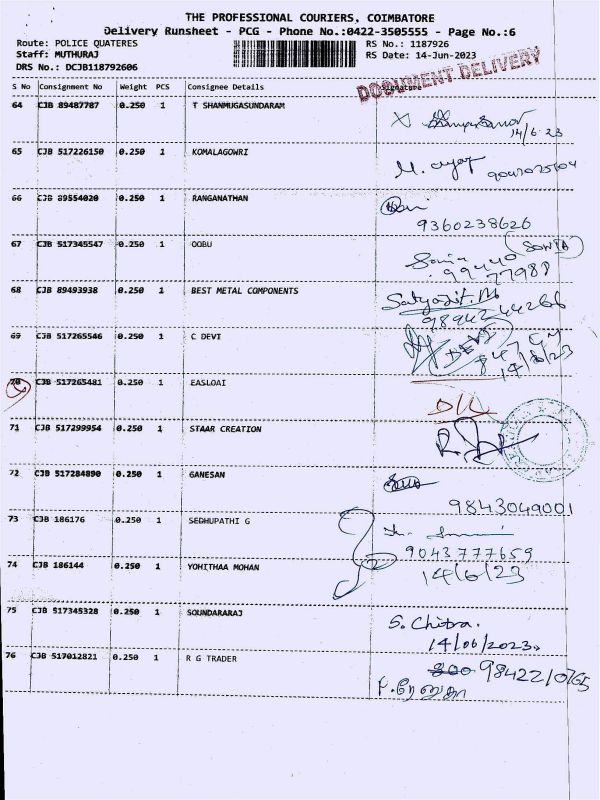 THE PROFESSIONAL COURIERS, COIMBATORE
Delivery Runsheet - PCG - Phone No.:0422-3505555 - Page No.:6
Route: POLICE QUATERES RS No.: 1187926
Staff: MUTHURAJ RS Date: 14-Jun-2023
DRS No.: DCJB118792606
DOCUMENT DELIVERY
S No Consignment No Weight PCS Consignee Details Signature
64 CJB 89487787 0.250 1 T SHANMUGASUNDARAM
14/6/23
65 CJB 517226150 0.250 1 KOMALAGOWRI
66 CJB 89554020 0.250 1 RANGANATHAN
9360238626
67 CJB 517345547 0.250 1 OOBU
SONIA
77988
68 CJB 89493938 0.250 1 BEST METAL COMPONENTS
69 CJB 517265546 0.250 1 C DEVI
DEVI
14/6/23
70 CJB 517265481 0.250 1 EASLOAI
D/L
71 CJB 517299954 0.250 1 STAAR CREATION
72 CJB 517284890 0.250 1 GANESAN
9843049001
73 CJB 186176 0.250 1 SEDHUPATHI G
9043777659
74 CJB 186144 0.250 1 YOHITHAA MOHAN
14/6/23
75 CJB 517345328 0.250 1 SOUNDARARAJ
S. Chitra.
14/06/2023.
76 CJB 517012821 0.250 1 R G TRADER
9842210765